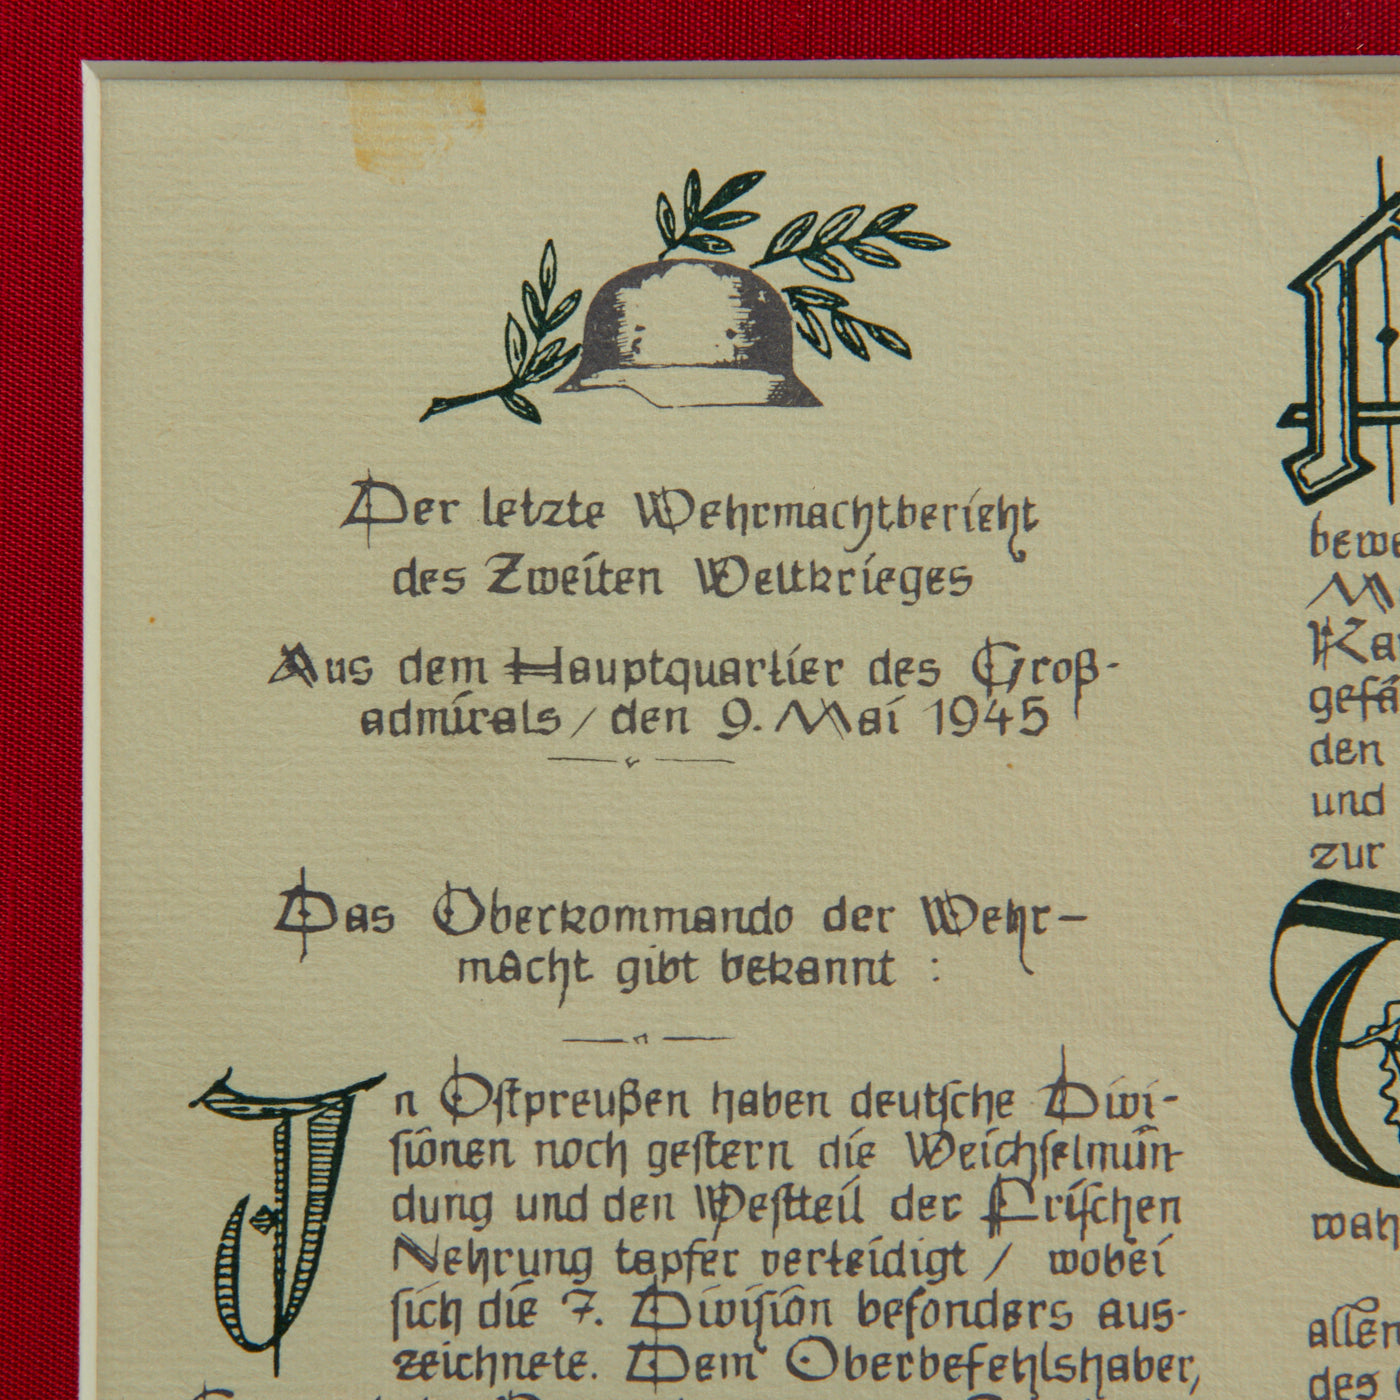 Der letzte Wehrmachtbericht
des Zweiten Weltkrieges
Aus dem Hauptquartier des Groß-
admirals / den 9. Mai 1945
Das Oberkommando der Wehr-
macht gibt bekannt :
Jn Oſtpreußen haben deutſche Divi-
ſionen noch geſtern die Weichſelmün-
dung und den Weſtteil der Friſchen
Nehrung tapfer verteidigt / wobei
ſich die 7. Diviſion beſonders aus-
zeichnete. Dem Oberbefehlshaber,
bewe
M
Ka
gefä
den
und
zur
T
wah
allen
des